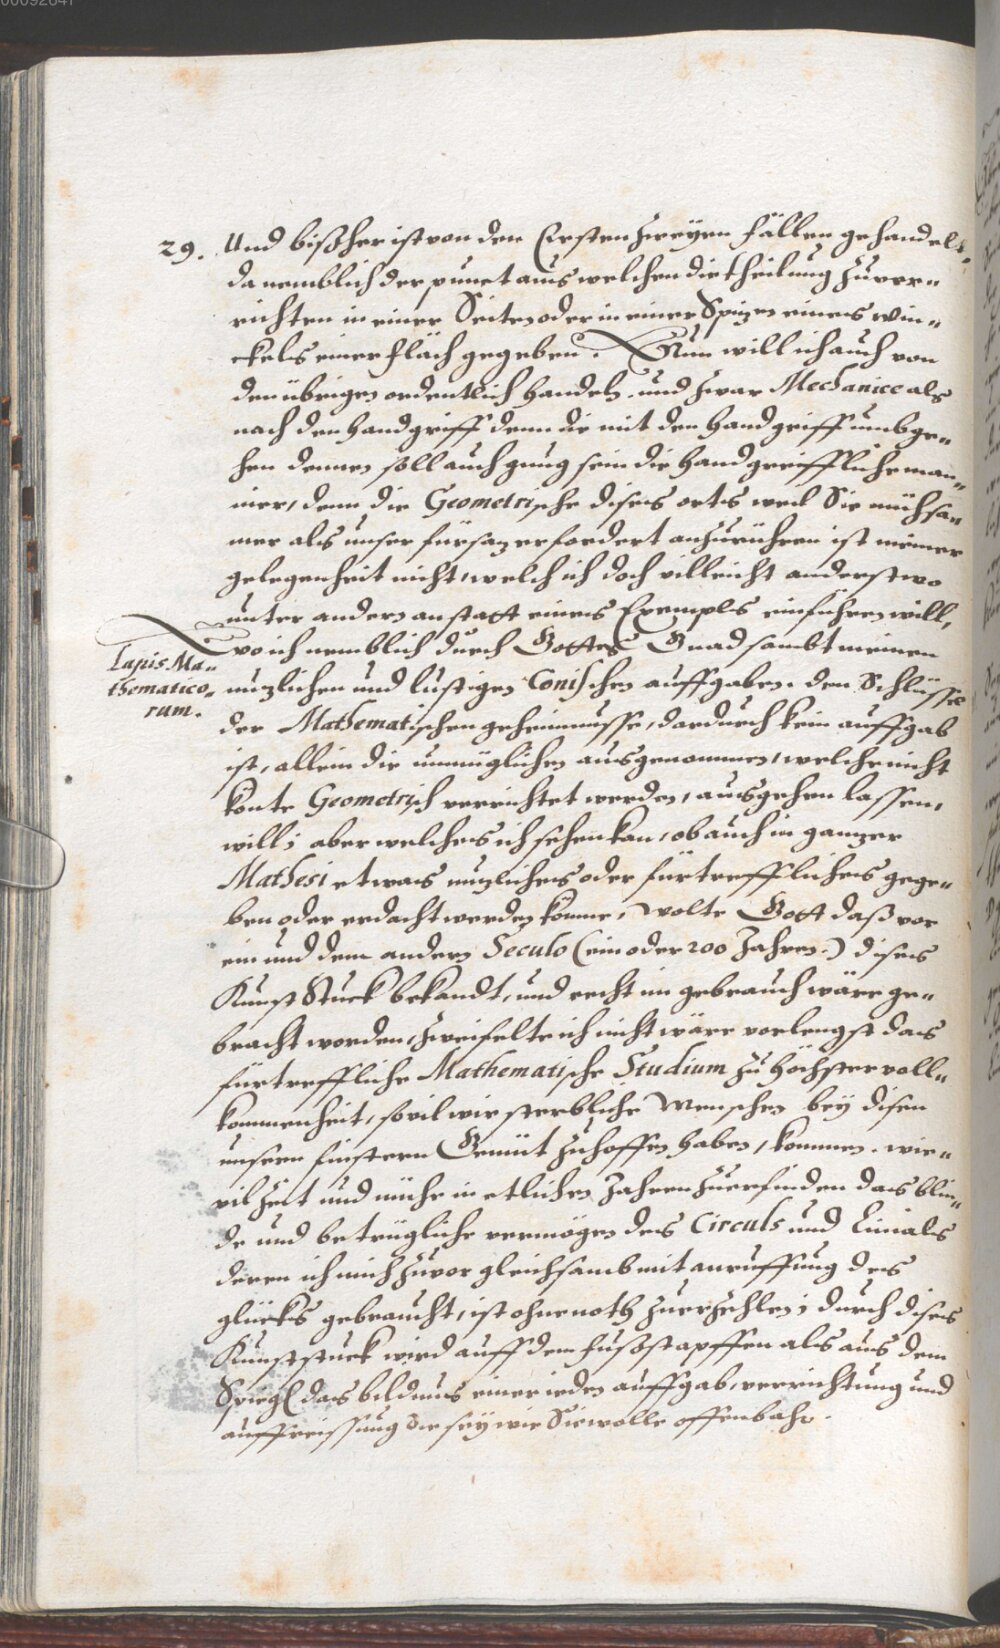 00092641
29. Und bißher ist von den Ersten zweyen fällen gehandelt,
da nemblich der punct aus welchen die theilung zuver-
richten in einer Seiten oder in einer Spizen eines win-
ckels einer fläch gegeben. Nun will ich auch von
den übrigen ordentlich handeln. und zwar Mechanice als
nach den handgriff denn die mit den handgriff umbge-
hen denen soll auch gnug sein die handgreiffliche man-
nier, denn die Geometrische dises orts weil Sie mühsa-
mer als unser fürsaz erfordert anzurühren ist meiner
gelegenheit nicht, welch ich doch villeicht anderstwo
unter andern anstatt eines Exempls einführen will,
wo ich nemblich durch Gottes Gnad sambt meinen
Lapis Ma-
thematico-
rum.
nuzlichen und lustigen Conischen auffgaben. den Schlüssel
der Mathematischen geheimnusse, dardurch kein auffgab
ist, allein die unmüglichen ausgenommen, welche nicht
konte Geometrisch verrichtet werden, ausgehen lassen,
will; aber welches ich sehen kan, ob auch in ganzer
Mathesi etwas nuzlichers oder fürtrefflichers gege-
ben oder erdacht werden könne, wolte Gott daß vor
ein und dem andern Seculo (ein oder 200 Jahren.) dises
Kunst Stuck bekandt, und recht im gebrauch wäre ge-
bracht worden, zweifelte ich nicht wäre vorlengst das
fürtreffliche Mathematische Studium zu höchster voll-
kommenheit, sovil wir sterbliche Menschen bey disen
unsern finstern Gemüt zuhoffen haben, kommen. wie-
vil zeit und mühe in etlichen Jahren zuerfinden das blin-
de und betrügliche vermögen des Circuls und Linials
deren ich mich zuvor gleichsamb mit anruffung des
glücks gebraucht, ist ohne noth zuerzehlen; durch dises
Kunststuck wird auff dem fußstapffen als aus dem
Spiegl das bildnus einer ieden auffgab, verrichtung und
auffreissung die sey wie Sie wolle offenbahr.